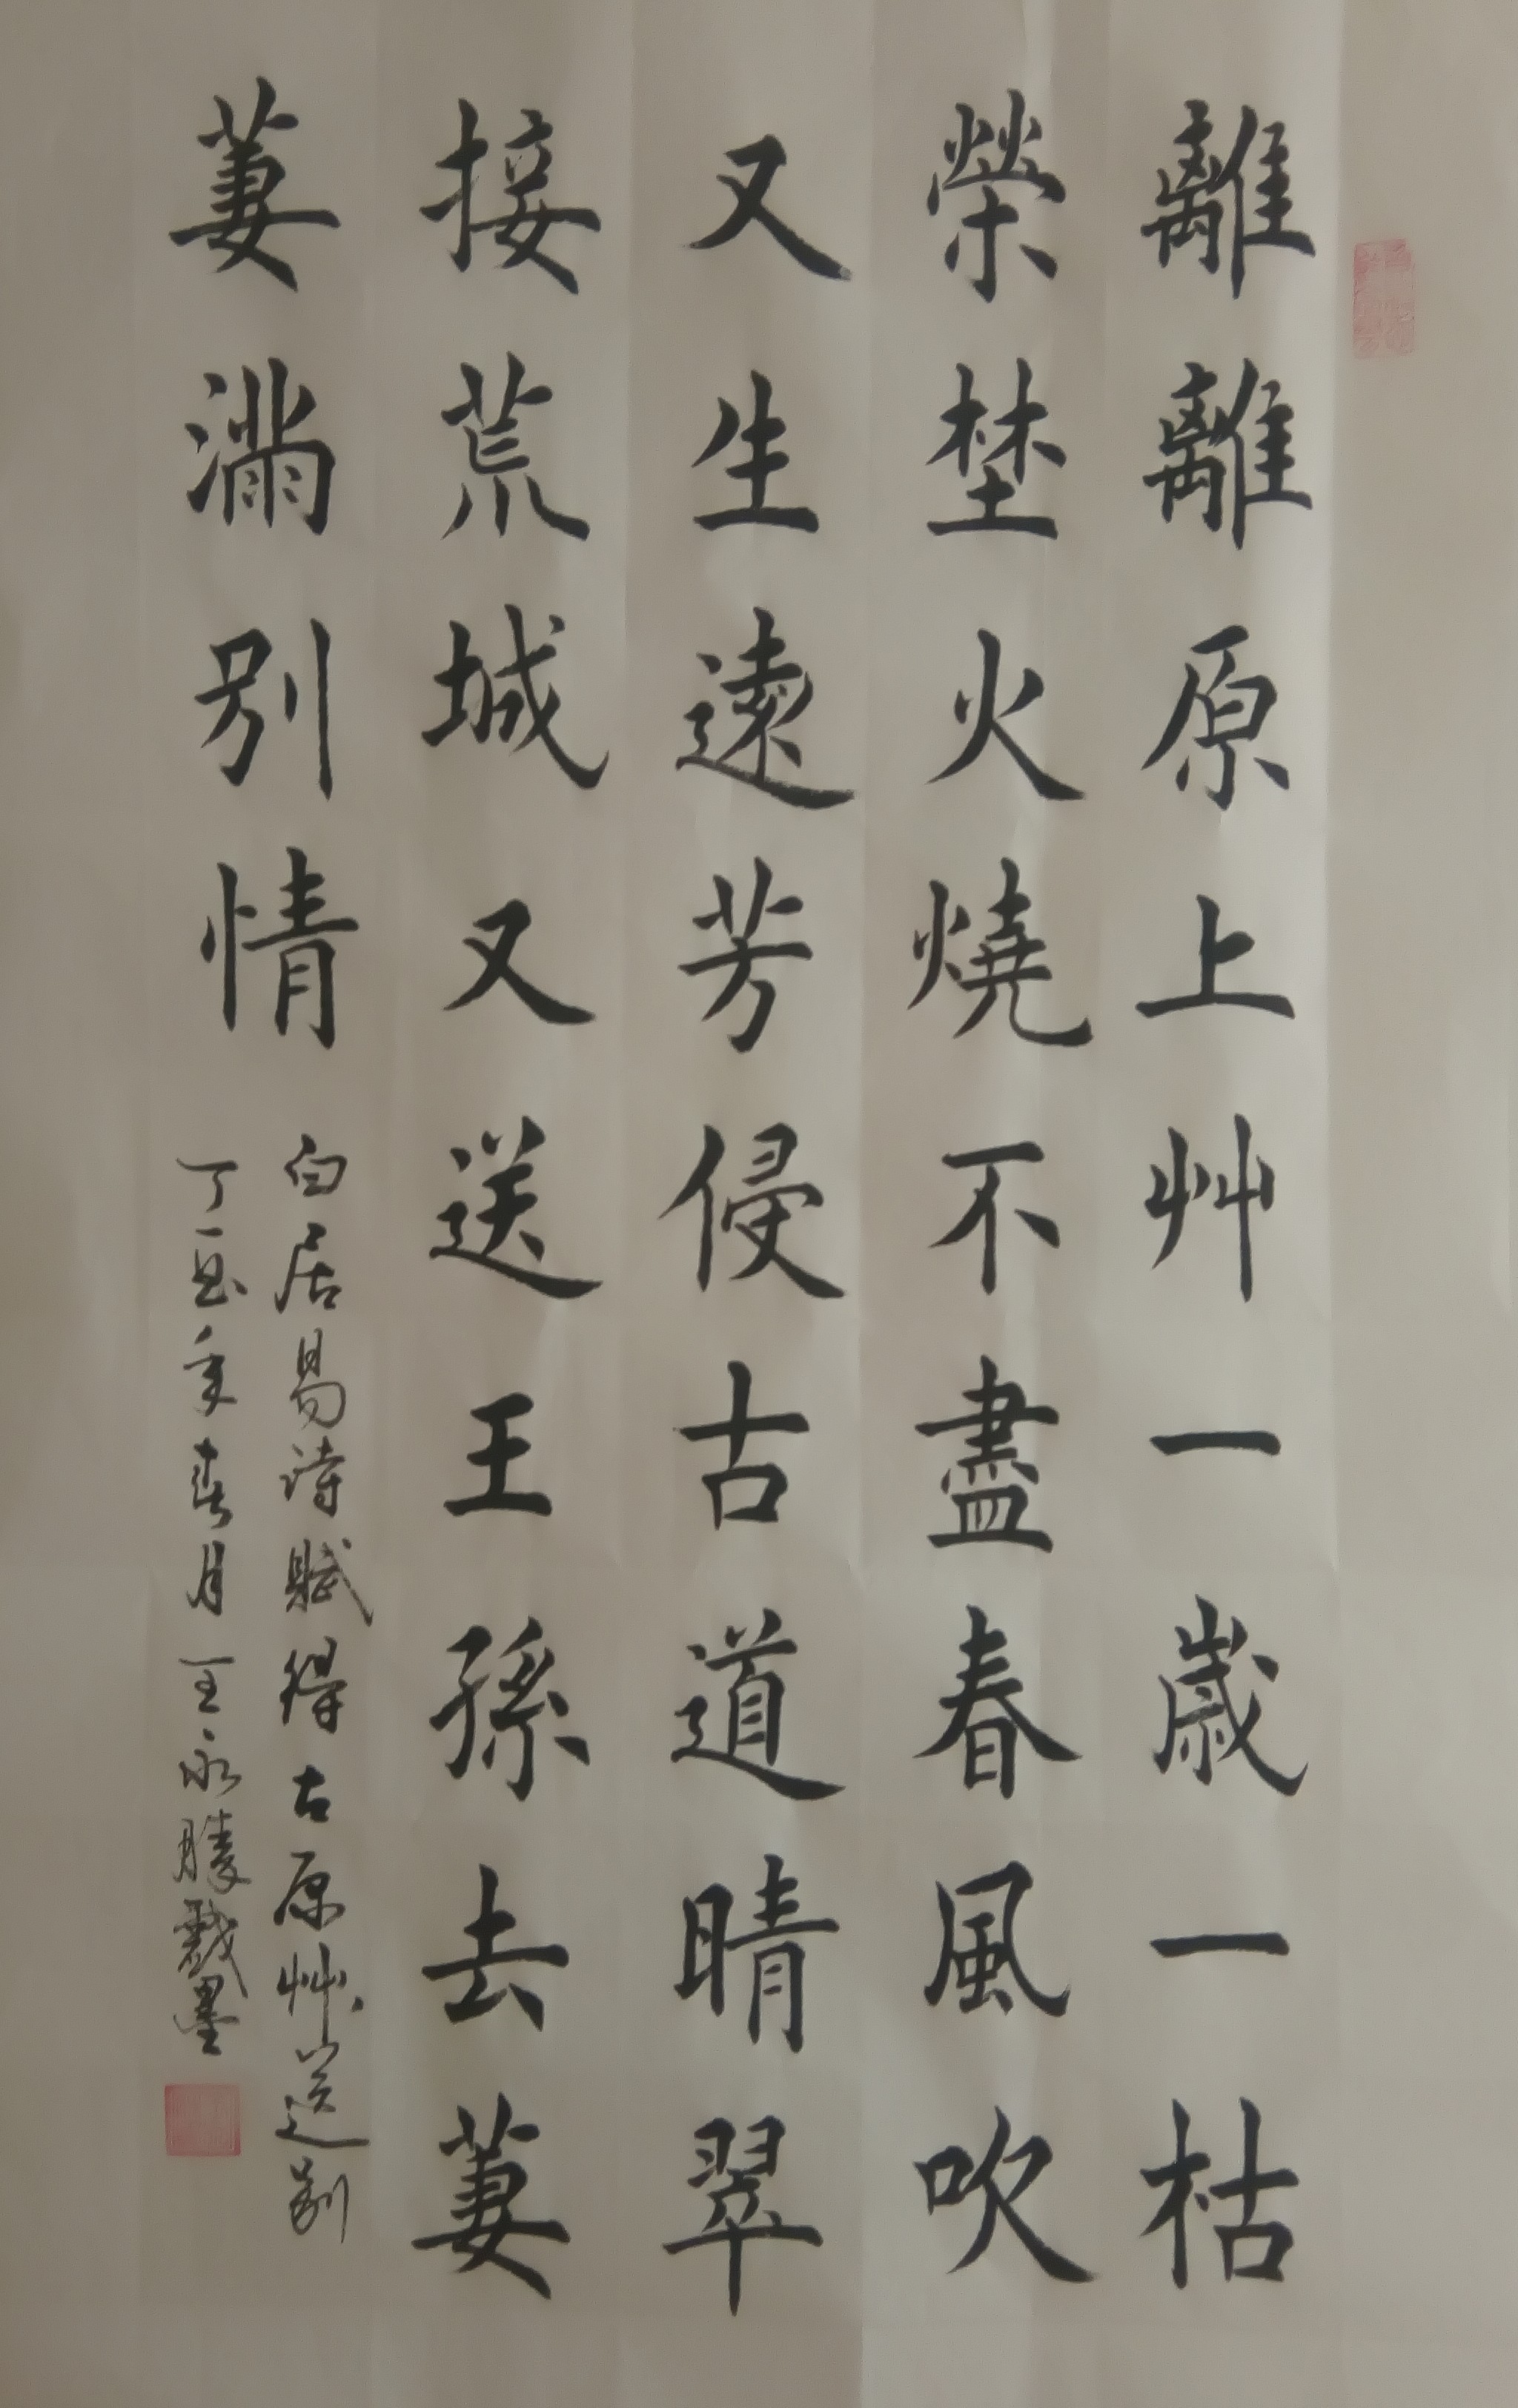 離離原上艸一歲一枯
榮埜火燒不盡春風吹
又生遠芳侵古道晴翠
接荒城又送王孫去萋
萋滿別情
白居易詩賦得古原艸送别
丁酉年春月王永勝戲墨